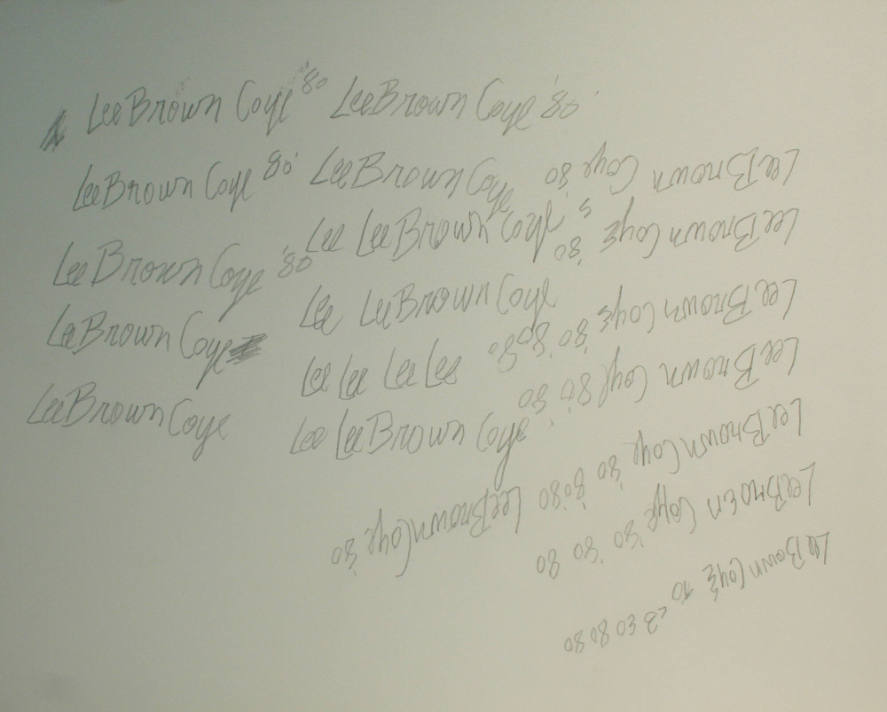 LeeBrown Coye '80 LeeBrown Coye '80
LeeBrown Coye 80' LeeBrown Coye
LeeBrown Coye '80 Lee LeeBrown Coye
LeeBrown Coye Lee LeeBrown Coye
LeeBrown Coye Lee Lee Lee Lee
Lee LeeBrown Coye
LeeBrown Coye '80
LeeBrown Coye '80
LeeBrown Coye '80 '80 80
LeeBrown Coye '80 '80 80
LeeBrown Coye '80 '8080 LeeBrown Coye '80
LeeBroen Coye '80 '80 80
Lee Bown Coye 80 80 80